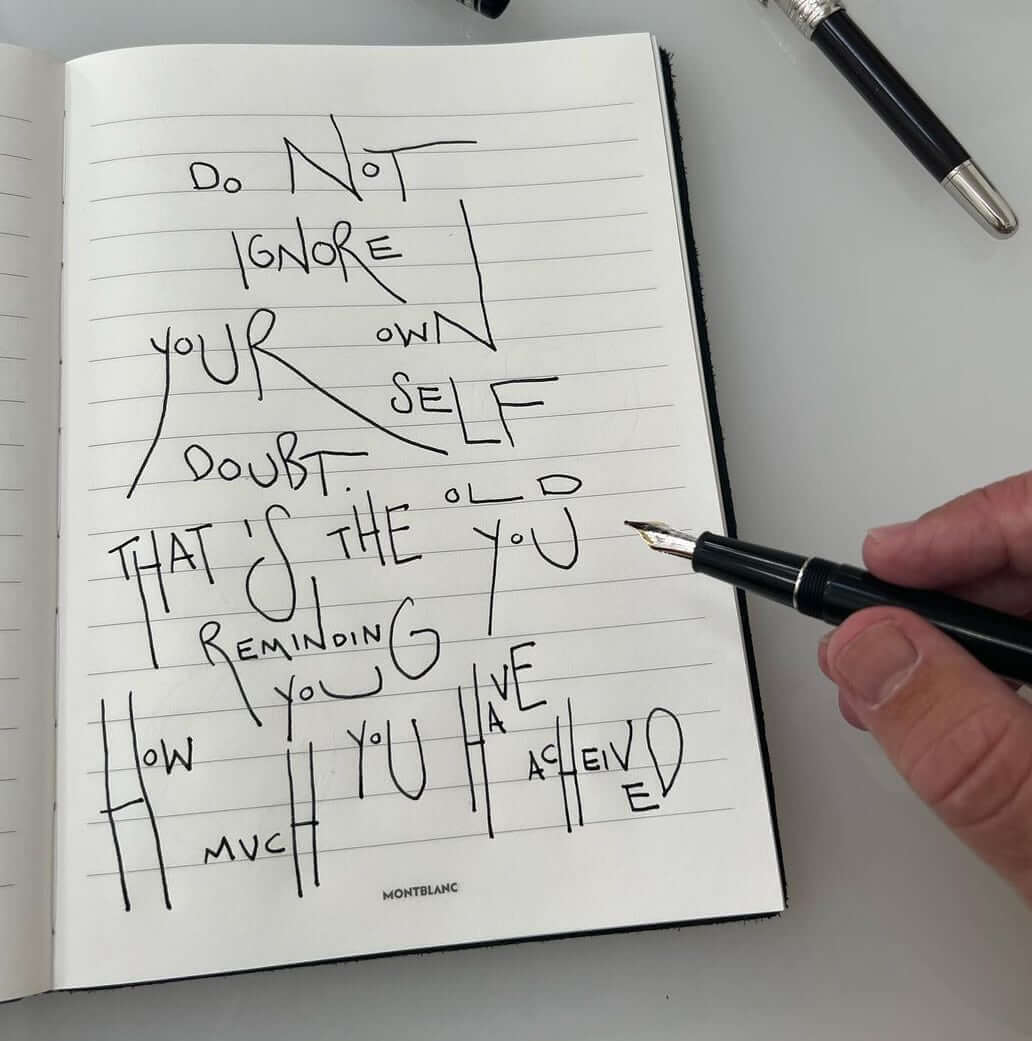 DO NOT
IGNORE
YOUR OWN
SELF
DOUBT.
THAT IS THE OLD
YOU
REMINDING
YOU
HOW MUCH YOU HAVE
ACHEIVED
MONTBLANC